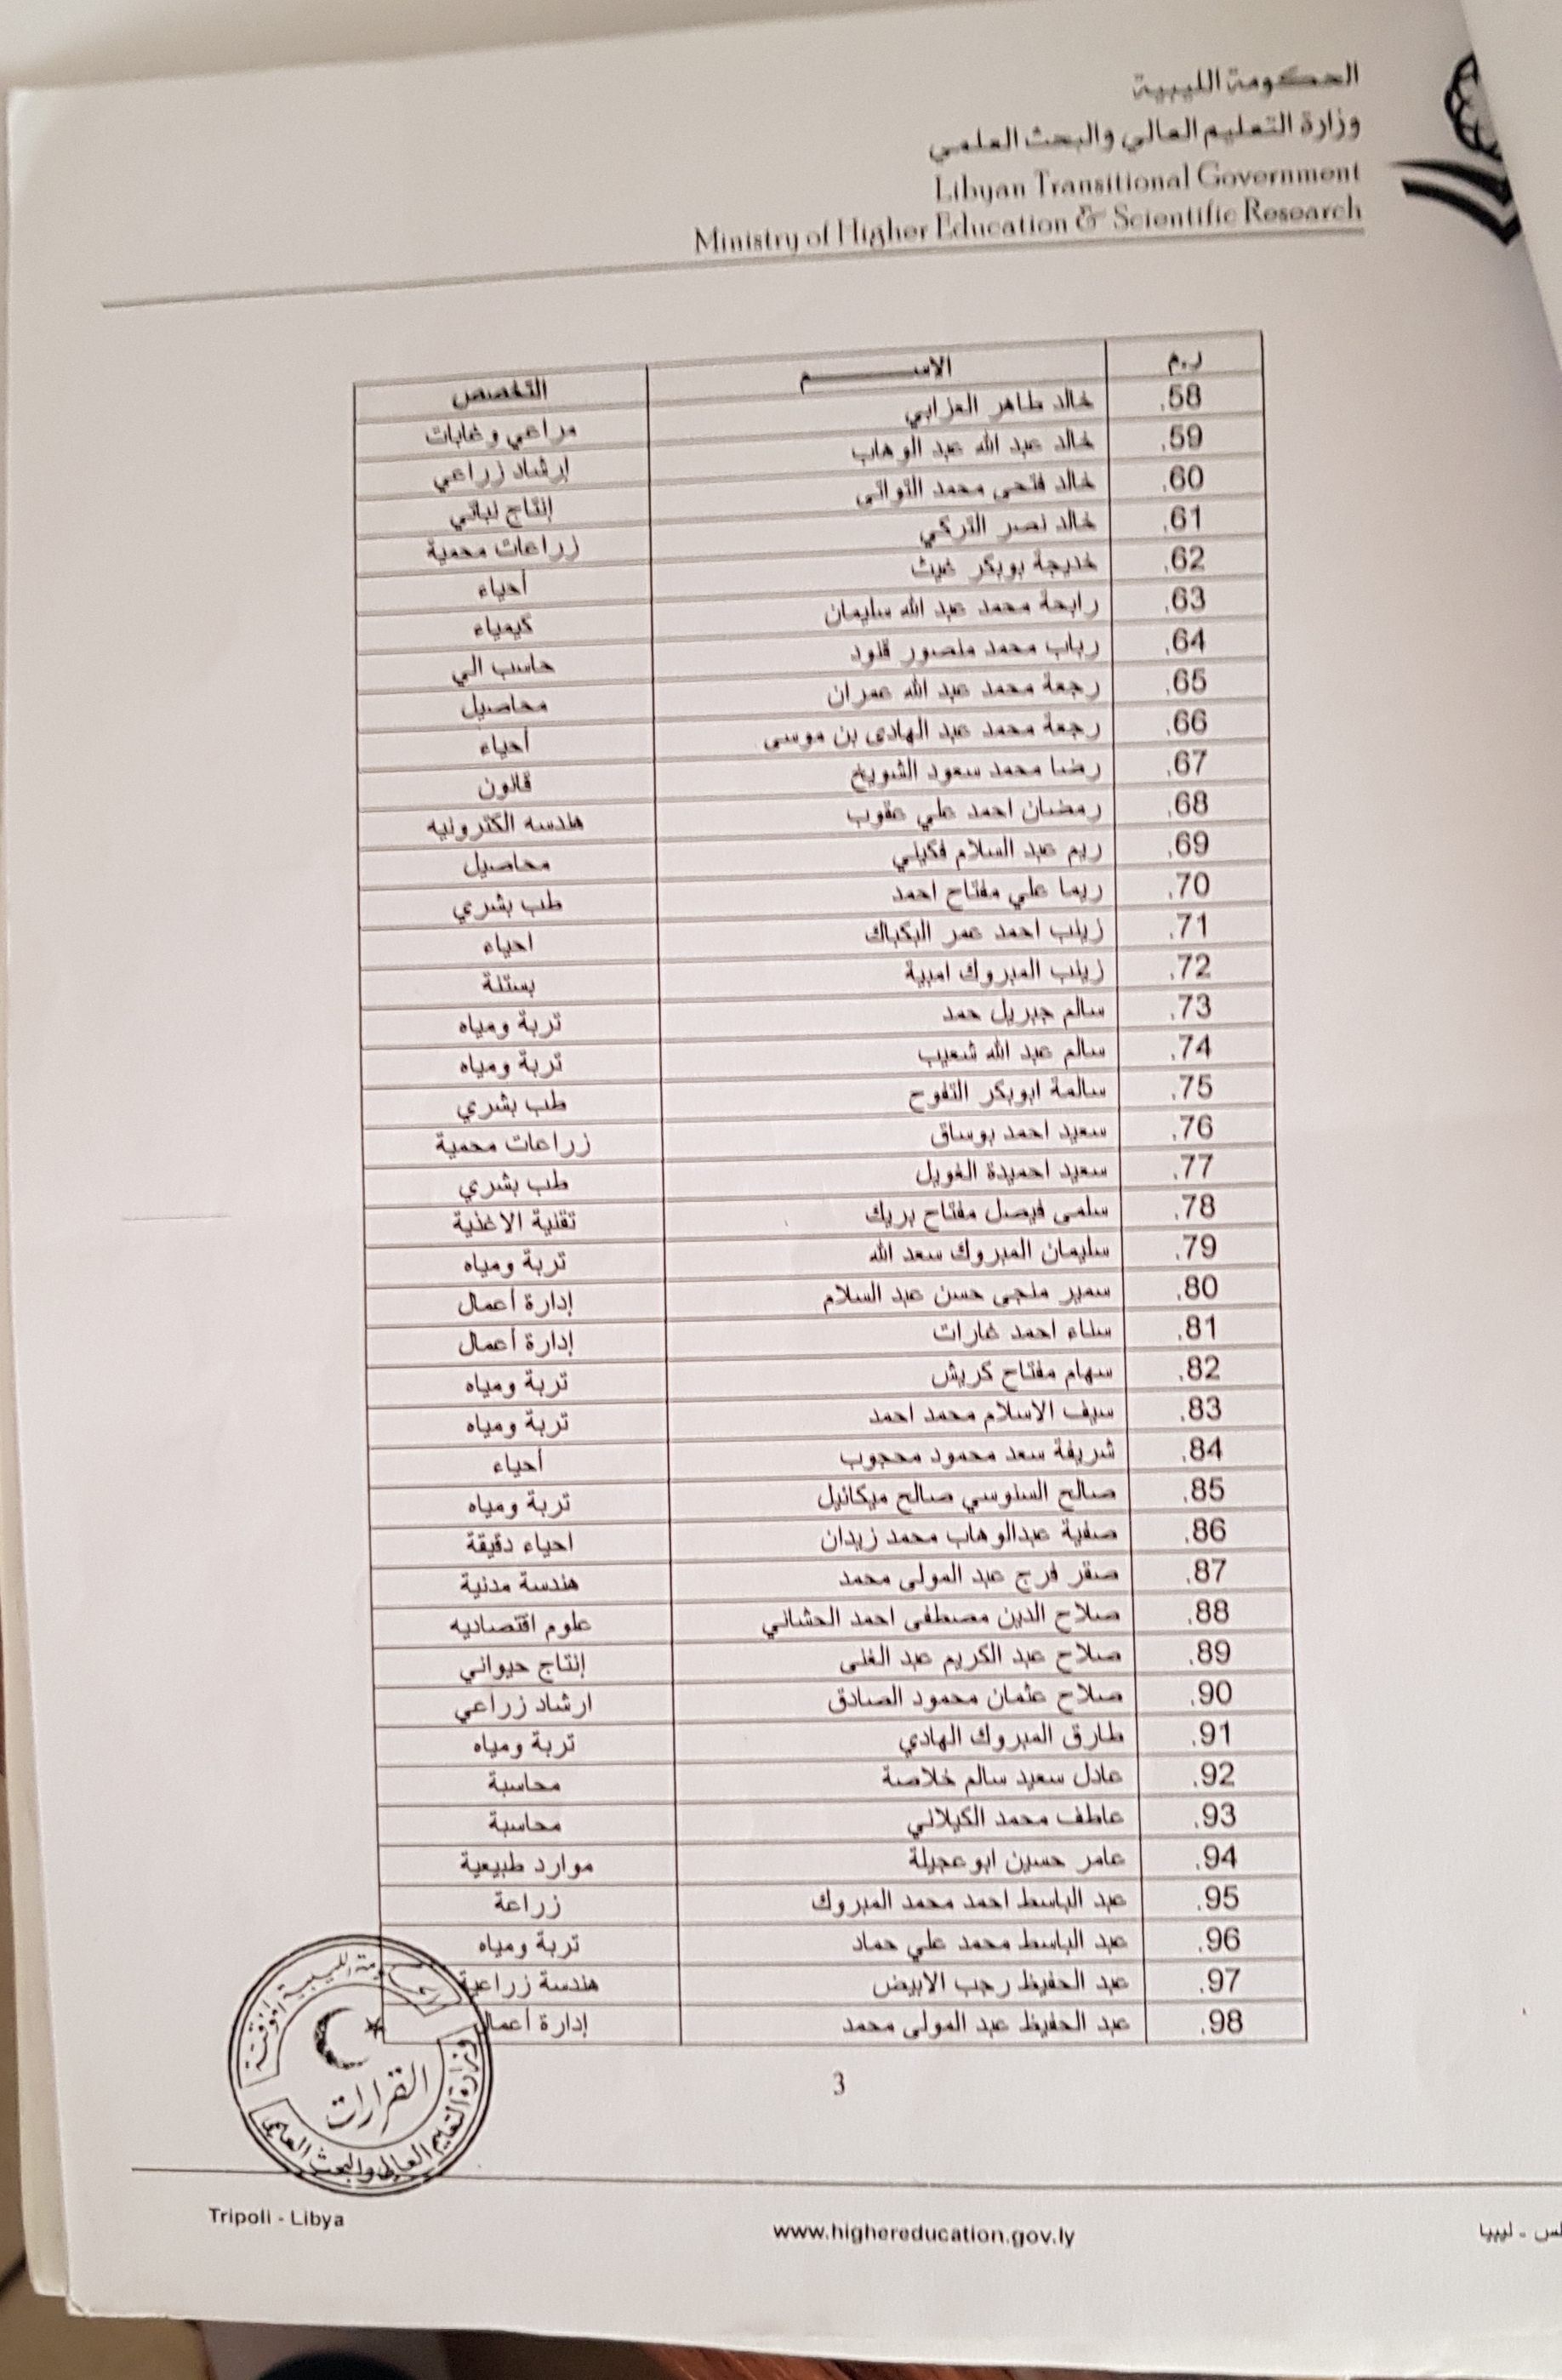 الحكومة الليبية
وزارة التعليم العالي والبحث العلمي
Libyan Transitional Government
Ministry of Higher Education & Scientific Research
ر.م الاســـــــــــم التخصص
58. خالد طاهر العزابي مراعي وغابات
59. خالد عبد الله عبد الوهاب إرشاد زراعي
60. خالد فتحى محمد التواتى إنتاج نباتي
61. خالد نصر التركي زراعات محمية
62. خديجة بوبكر غيث أحياء
63. رابحة محمد عبد الله سليمان كيمياء
64. رباب محمد منصور قنود حاسب الي
65. رجعة محمد عبد الله عمران محاصيل
66. رجعة محمد عبد الهادى بن موسى أحياء
67. رضا محمد سعود الشويخ قانون
68. رمضان احمد علي عقوب هندسه الكترونيه
69. ريم عبد السلام فكيني محاصيل
70. ريما علي مفتاح احمد طب بشري
71. زينب احمد عمر البكباك احياء
72. زينب المبروك امبية بستنة
73. سالم جبريل حمد تربة ومياه
74. سالم عبد الله شعيب تربة ومياه
75. سالمة ابوبكر التفوح طب بشري
76. سعيد احمد بوساق زراعات محمية
77. سعيد احميدة الغويل طب بشري
78. سلمى فيصل مفتاح بريك تقنية الاغذية
79. سليمان المبروك سعد الله تربة ومياه
80. سمير منجى حسن عبد السلام إدارة أعمال
81. سناء احمد غارات إدارة أعمال
82. سهام مفتاح كريش تربة ومياه
83. سيف الاسلام محمد احمد تربة ومياه
84. شريفة سعد محمود محجوب أحياء
85. صالح السنوسي صالح ميكائيل تربة ومياه
86. صفية عبدالوهاب محمد زيدان احياء دقيقة
87. صقر فرج عبد المولى محمد هندسة مدنية
88. صلاح الدين مصطفى احمد الحشاني علوم اقتصاديه
89. صلاح عبد الكريم عبد الغنى إنتاج حيواني
90. صلاح عثمان محمود الصادق ارشاد زراعي
91. طارق المبروك الهادي تربة ومياه
92. عادل سعيد سالم خلاصة محاسبة
93. عاطف محمد الكيلاني محاسبة
94. عامر حسين ابوعجيلة موارد طبيعية
95. عبد الباسط احمد محمد المبروك زراعة
96. عبد الباسط محمد علي حماد تربة ومياه
97. عبد الحفيظ رجب الابيض هندسة زراعية
98. عبد الحفيظ عبد المولى محمد إدارة أعمال
القرارات
وزارة التعليم العالي والبحث العلمي
3
Tripoli - Libya
www.highereducation.gov.ly
ليبيا